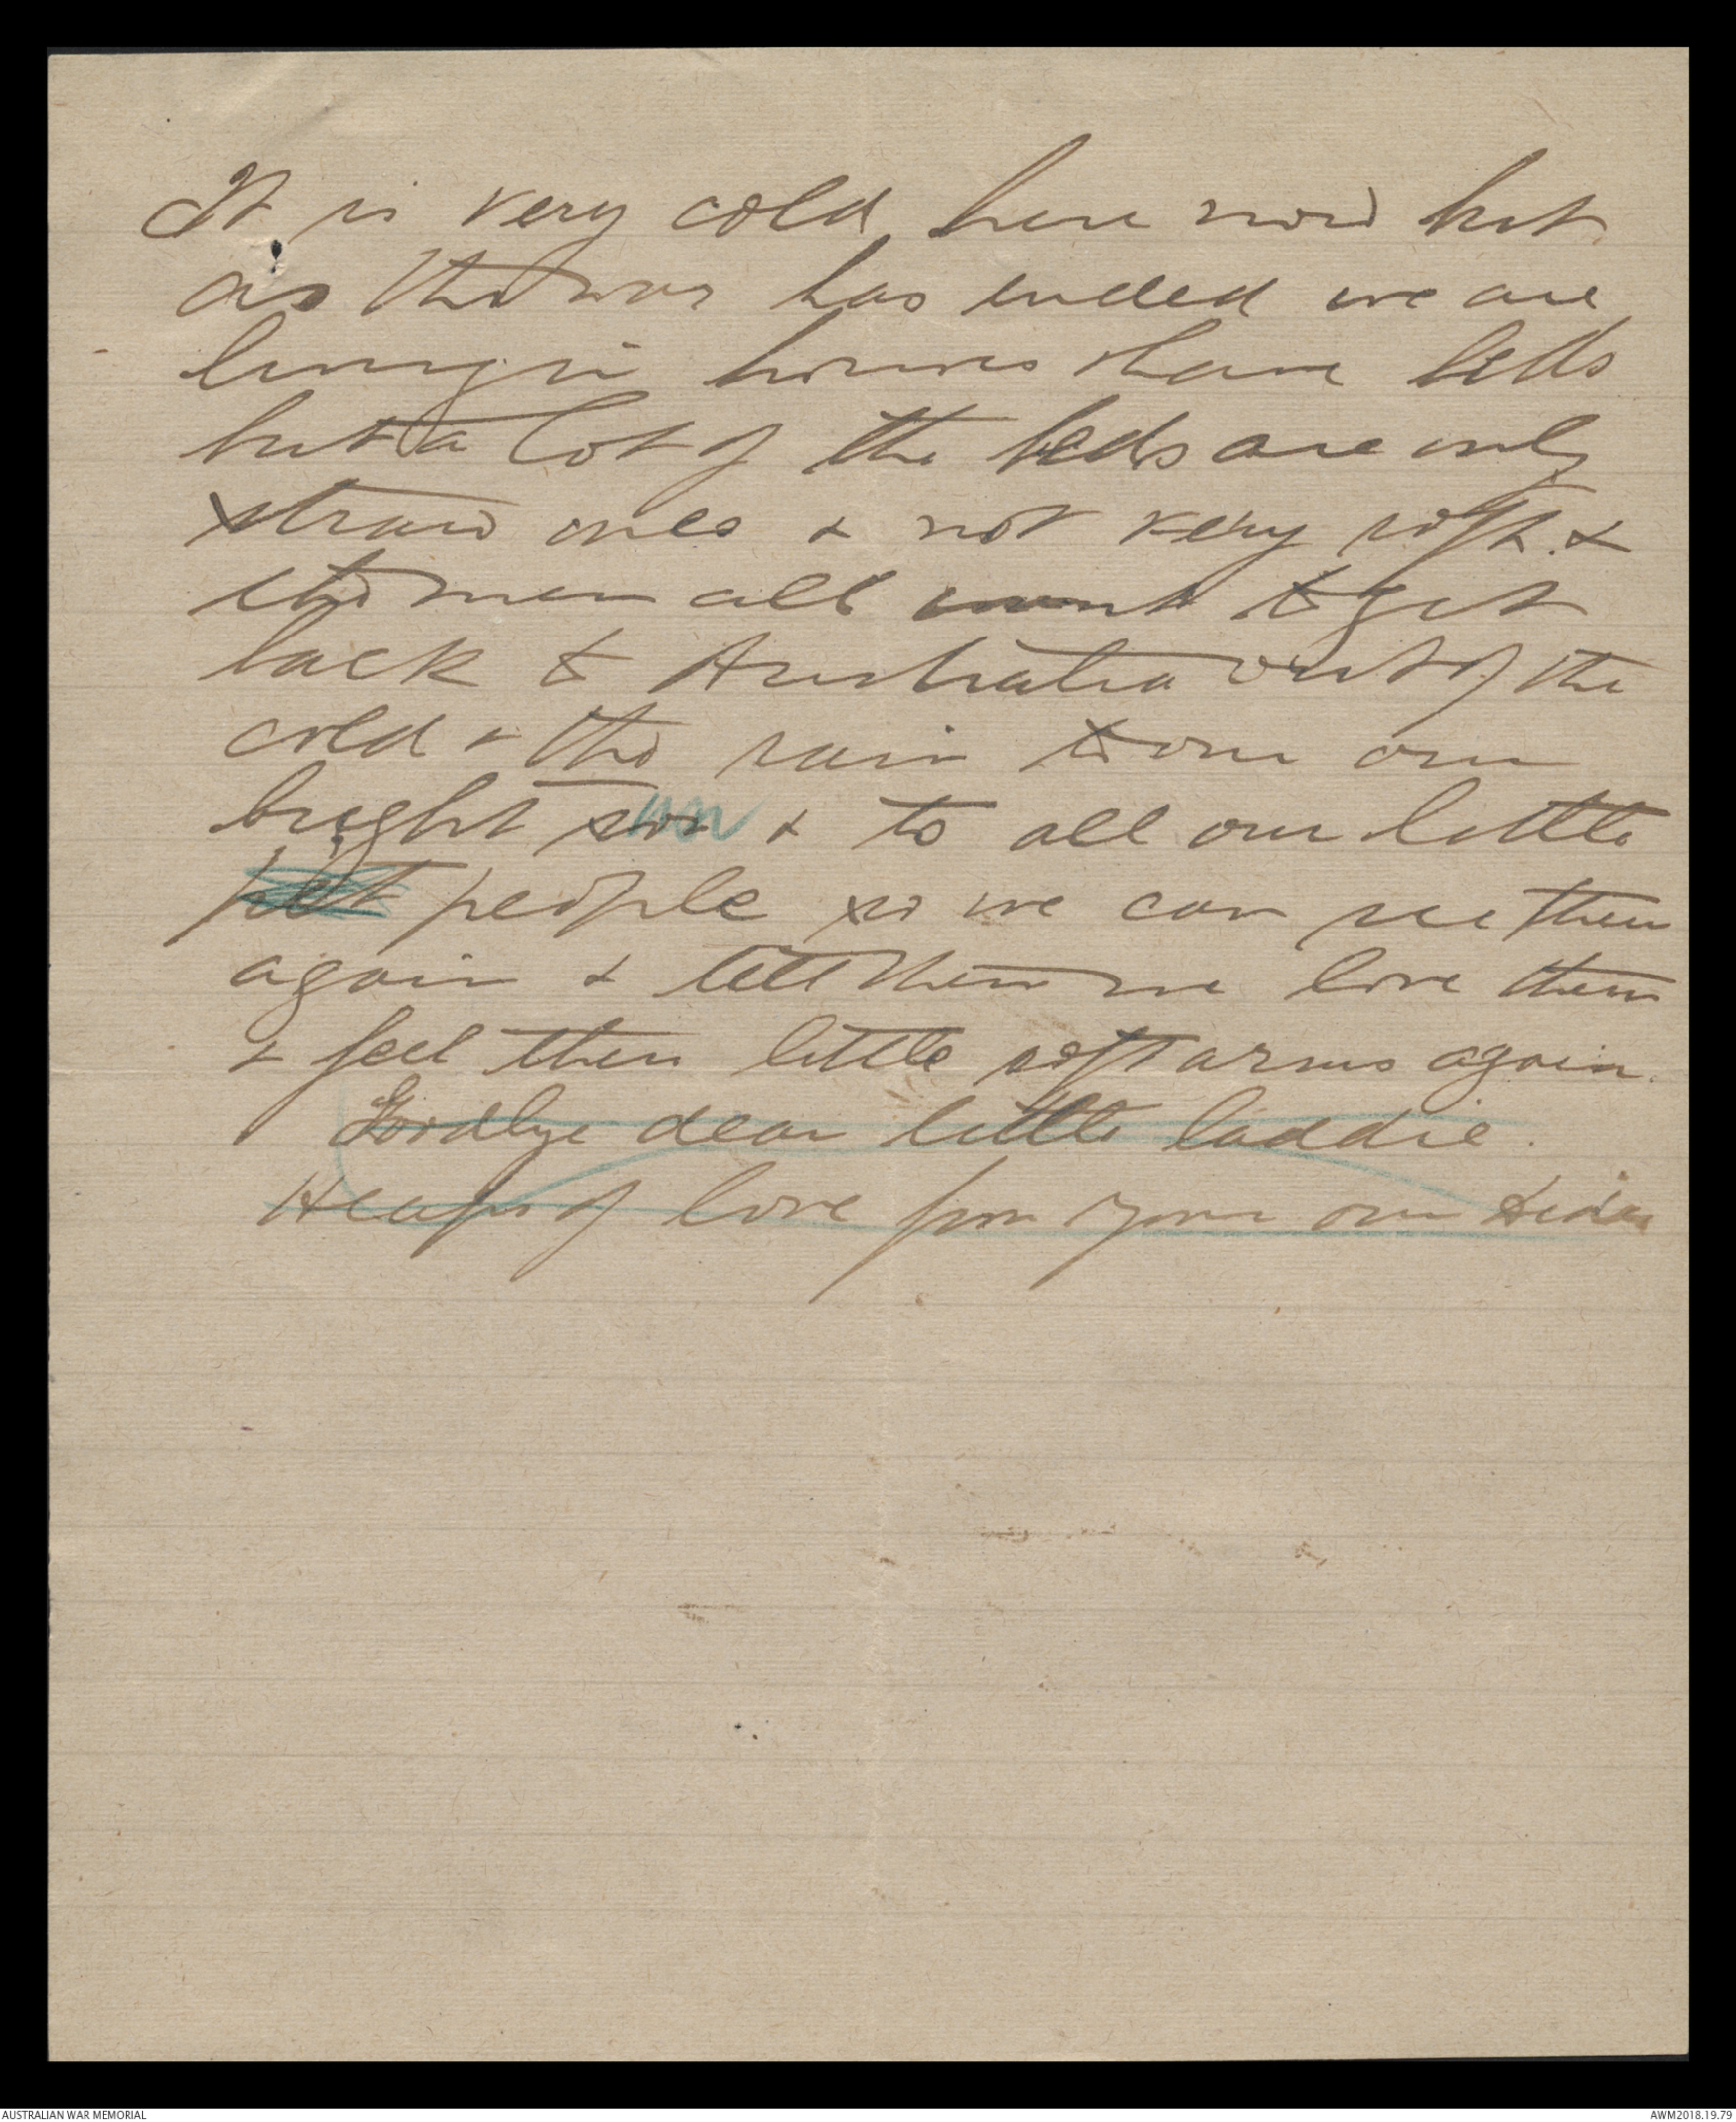 It is very cold here now but
as the war has ended we are
living in houses & have beds
but a lot of the beds are only
straw ones & not very soft. &
the men all want to get
back to Australia out of the
cold & the rain to our own
bright sun & to all our little
pet people so we can see them
again & tell them we love them
& feel their little soft arms again.
Goodbye dear little laddie.
Heaps of love from your own
AUSTRALIAN WAR MEMORIAL
AWM2018.19.79